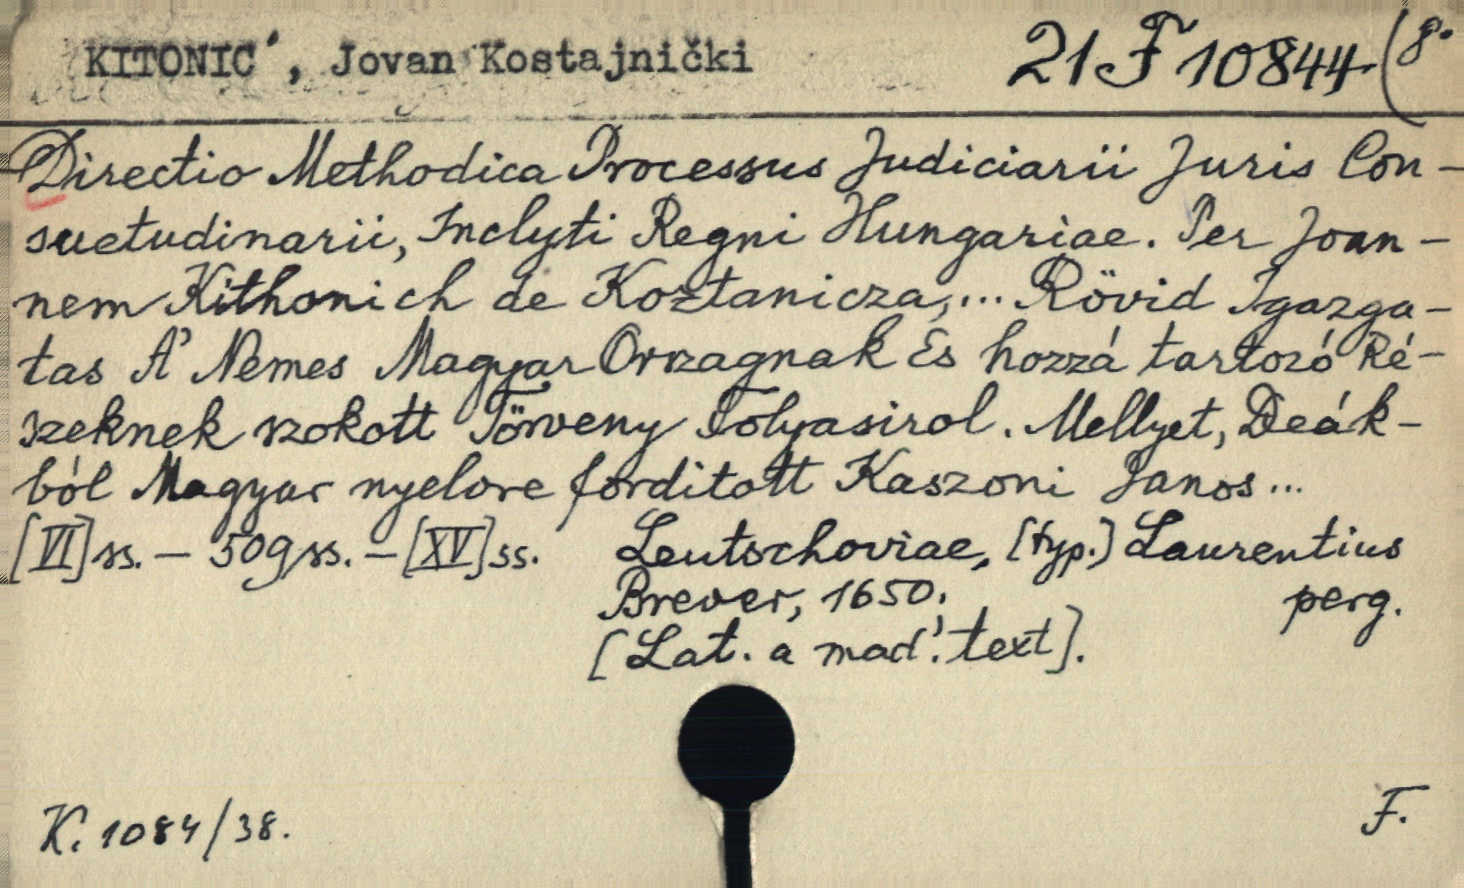 KITONIC´, Jovan Kostajnički 21 F 10844 (8°
Directio Methodica Processus Judiciarii Juris Con-
suetudinarii, Inclyti Regni Hungariae. Per Joan-
nem Kithonich de Koztanicza,... Rövid Igazga-
tas A' Nemes Magyar Orszagnak Es hozzá tartozó Ré-
szeknek szokott Törveny Folyasirol. Mellyet, Deák-
ból Magyar nyelvre forditott Kaszoni Janos...
[VI] ss. – 509 ss. – [XV] ss. Leutschoviae, [typ.] Laurentius
Brever, 1650. perg.
[Lat. a maď. text].
K. 1084/38. F.